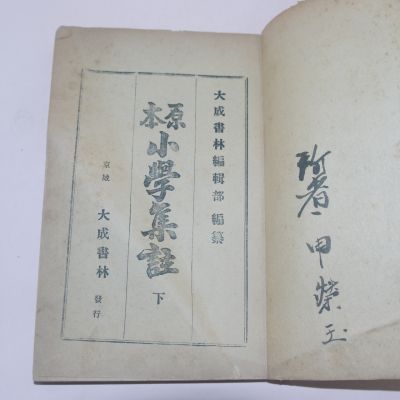 所者
甲榮玉
大成書林編輯部 編纂
原本 小學集註 下
京城 大成書林 發行